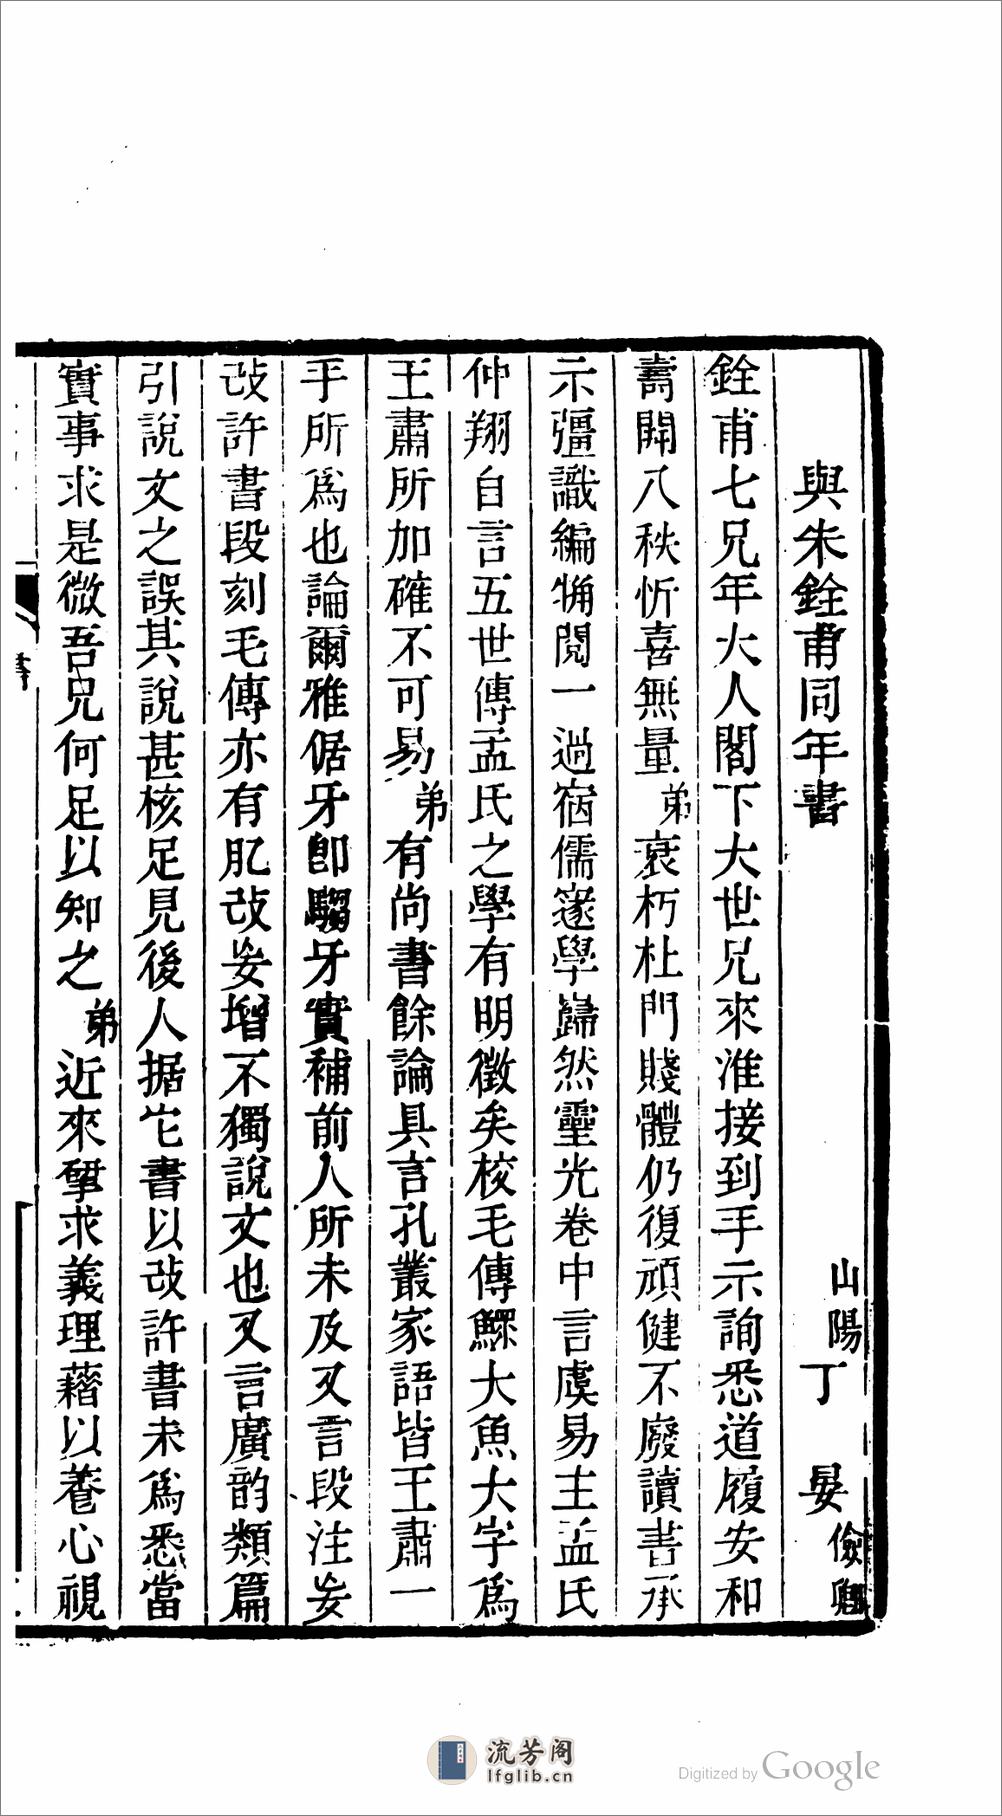 與朱銓甫同年書
山陽丁 晏儉卿
銓甫七兄年大人閣下大世兄來淮接到手示詢悉道履安和
壽開八秩忻喜無量弟衰朽杜門賤體仍復頑健不廢讀書承
示彊識編觕閱一過宿儒邃學巋然靈光卷中言虞易主孟氏
仲翔自言五世傳孟氏之學有明徵矣校毛傳鰥大魚大字爲
王肅所加確不可易弟有尚書餘論具言孔叢家語皆王肅一
手所爲也論爾雅倨牙卽騶牙實補前人所未及又言段注妄
改許書段刻毛傳亦有肊改妄增不獨說文也又言廣韵類篇
引說文之誤其說甚核足見後人据它書以改許書未爲悉當
實事求是微吾兄何足以知之弟近來揅求義理藉以養心視
流芳阁
lfglib.cn
Digitized by Google